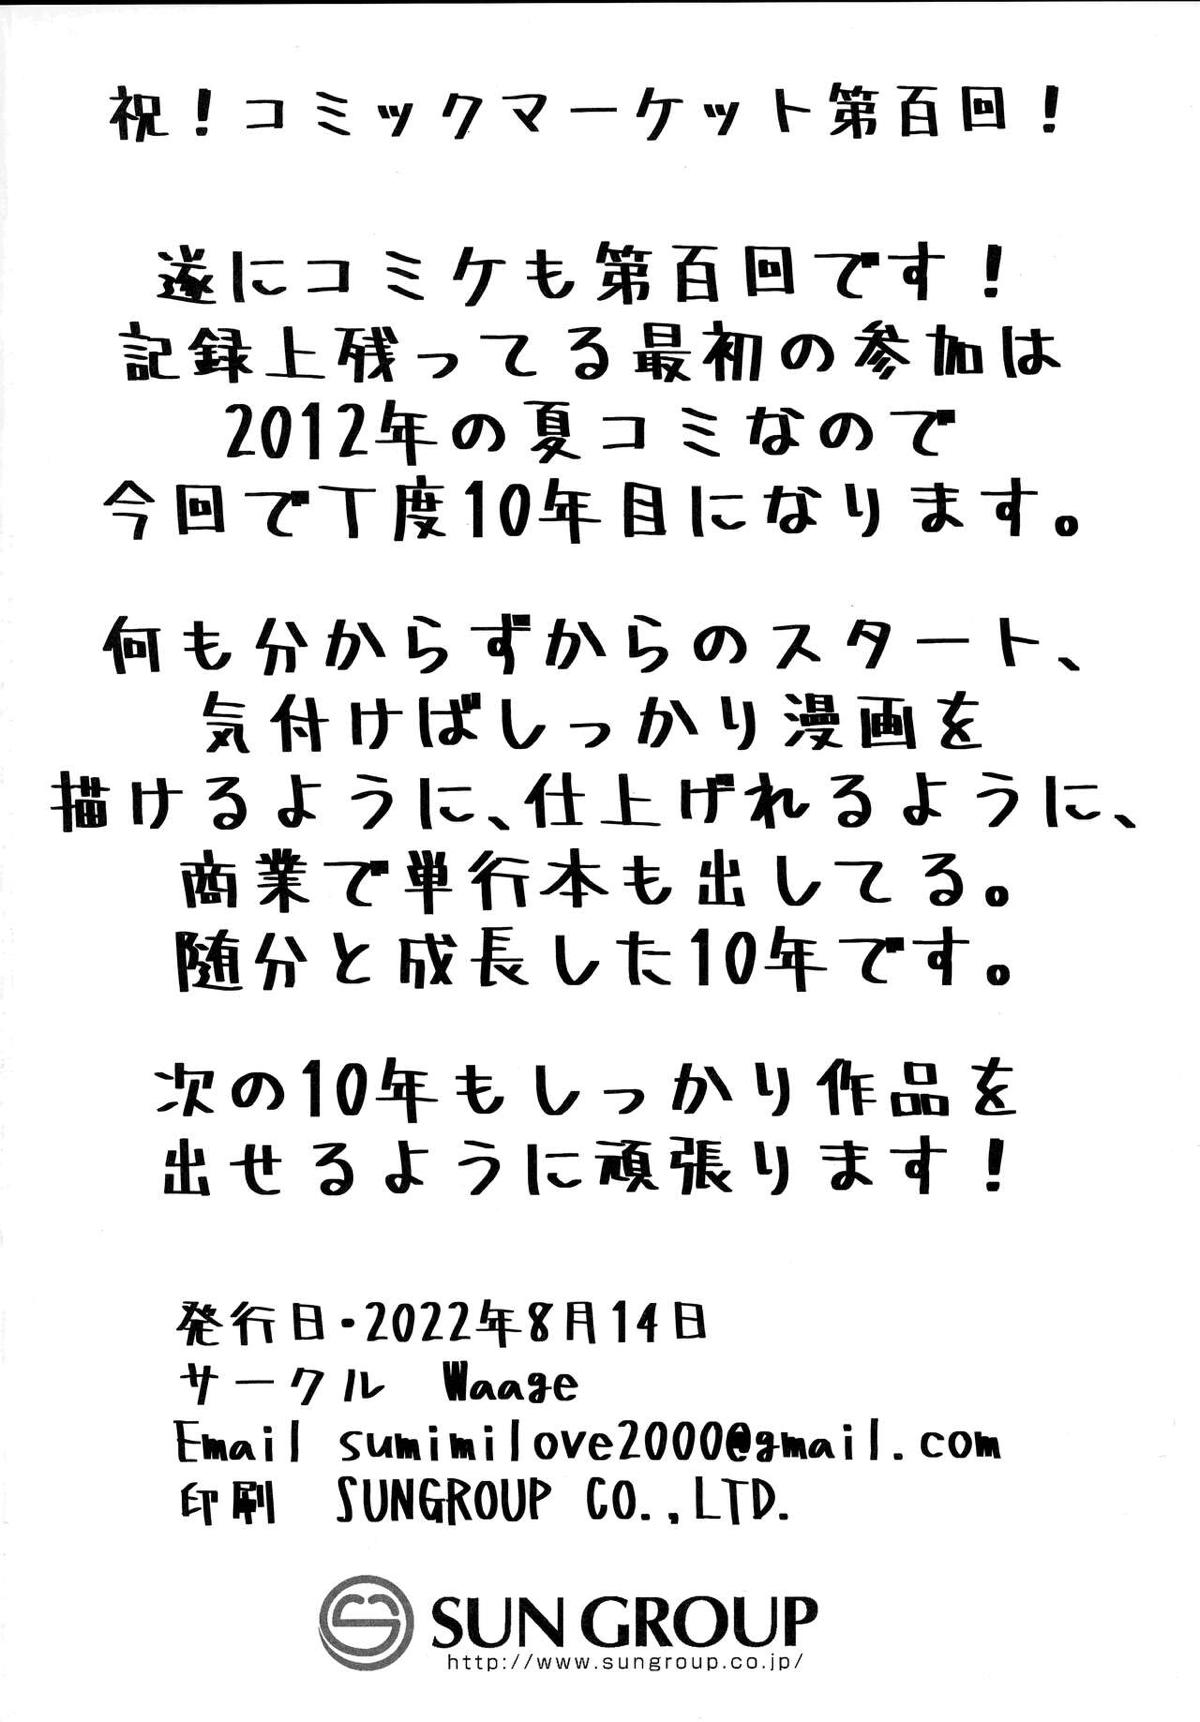 祝！コミックマーケット第百回！
遂にコミケも第百回です！
記録上残ってる最初の参加は
2012年の夏コミなので
今回で丁度10年目になります。
何も分からずからのスタート、
気付けばしっかり漫画を
描けるように、仕上げれるように、
商業で単行本も出してる。
随分と成長した10年です。
次の10年もしっかり作品を
出せるように頑張ります！
発行日・2022年8月14日
サークル　Waage
Email sumimilove2000@gmail.com
印刷　SUNGROUP CO.,LTD.
SUN GROUP
http://www.sungroup.co.jp/